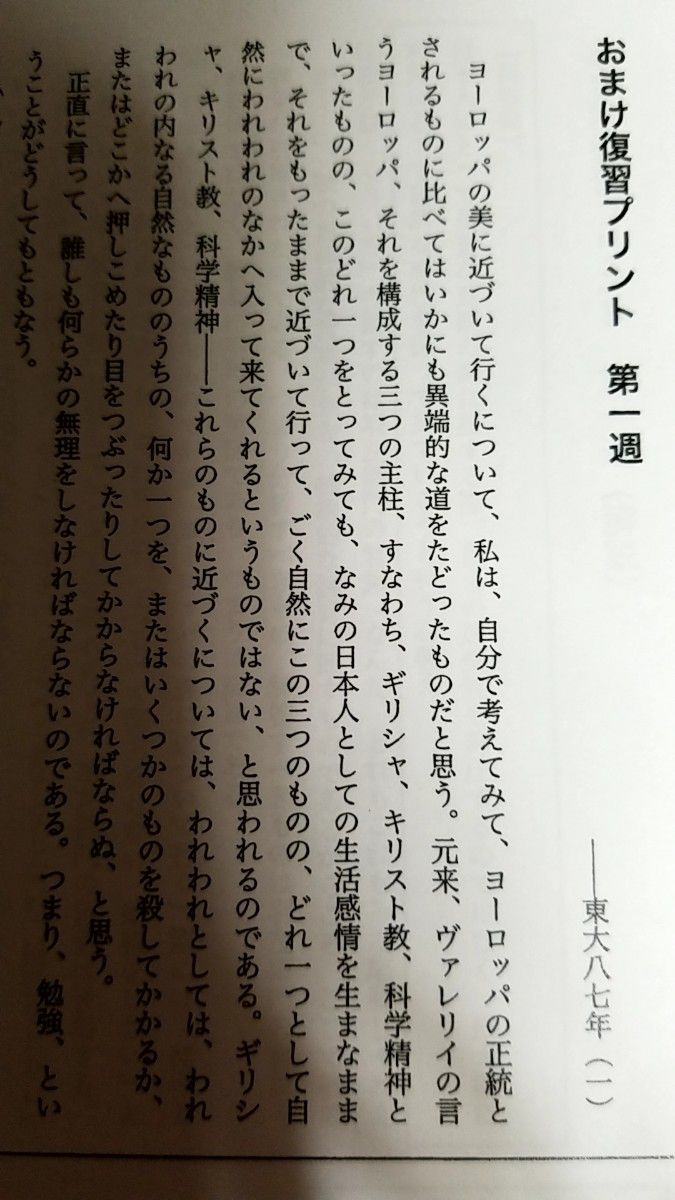 おまけ復習プリント　第一週
――東大八七年（一）
ヨーロッパの美に近づいて行くについて、私は、自分で考えてみて、ヨーロッパの正統と
されるものに比べてはいかにも異端的な道をたどったものだと思う。元来、ヴァレリイの言
うヨーロッパ、それを構成する三つの主柱、すなわち、ギリシャ、キリスト教、科学精神と
いったものの、このどれ一つをとってみても、なみの日本人としての生活感情を生まなまま
で、それをもったままで近づいて行って、ごく自然にこの三つのものの、どれ一つとして自
然にわれわれのなかへ入って来てくれるというものではない、と思われるのである。ギリシ
ャ、キリスト教、科学精神――これらのものに近づくについては、われわれとしては、われ
われの内なる自然なもののうちの、何か一つを、またはいくつかのものを殺してかかるか、
またはどこかへ押しこめたり目をつぶったりしてかからなければならぬ、と思う。
正直に言って、誰しも何らかの無理をしなければならないのである。つまり、勉強、とい
うことがどうしてもともなう。